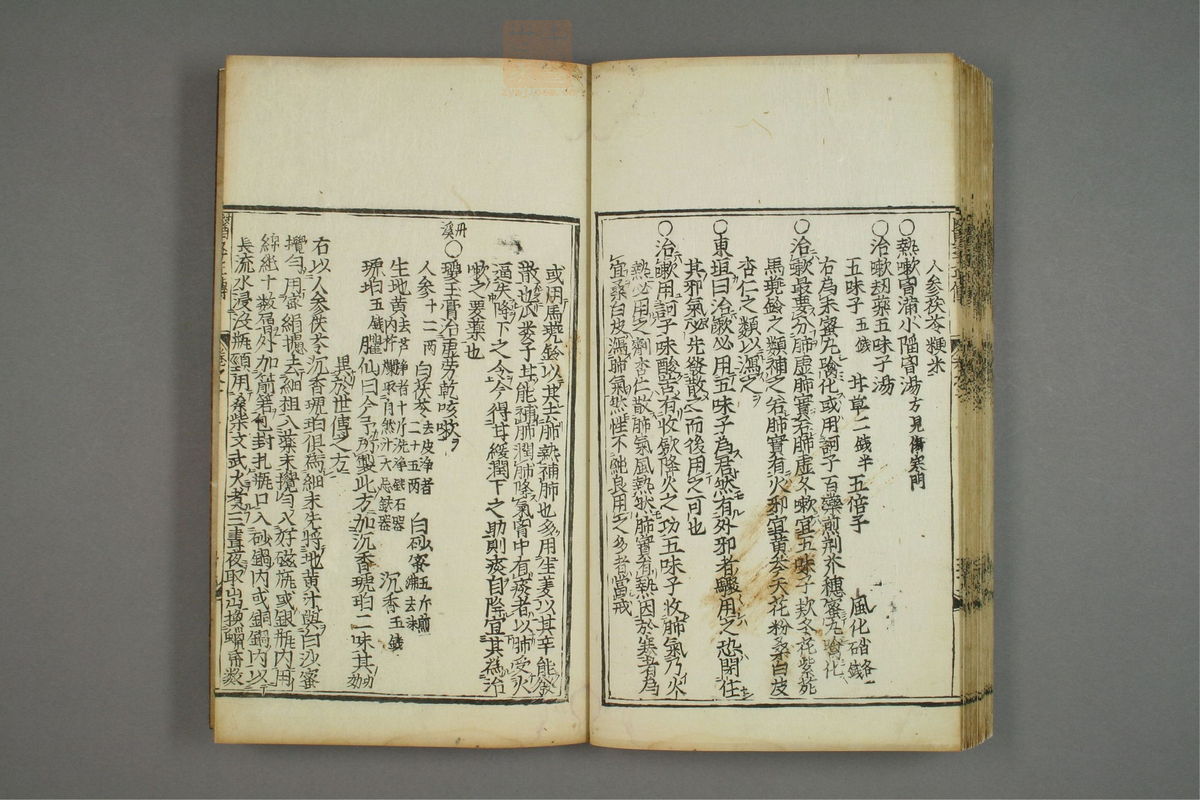 人參茯苓粳米
○熱嗽胃滿小陷胷湯方見傷寒門
○治嗽刼藥五味子湯
五味子五錢 甘草二錢半 五倍子 風化硝各一錢
右為末蜜丸噙化或用訶子百藥煎荆芥穗蜜丸噙化
○治嗽最要分肺虛肺實若肺虛久嗽宜五味子款冬花紫菀
馬兠鈴之類補之若肺實有火邪宜黄芩天花粉桑白皮
杏仁之類以瀉之
○東垣曰治嗽必用五味子為君然有外邪者驟用之恐閉住
其邪氣必先發散之而後用之可也
○治嗽用訶子味酸苦有收歛降火之功五味子收肺氣乃火
熱必用之劑杏仁散肺氣風熱然肺實有熱因於寒者為
宜桑白皮瀉肺氣然性不純良用之多者當戒
或用馬兠鈴以其去肺熱補肺也多用生姜以其辛能發
散也瓜蔞子甘能補肺潤肺降氣胷中有痰者以肺受火
逼失降下之令今得甘緩潤下之助則痰自降宜其為治
嗽之要藥也
丹溪○瓊玉膏治虛勞乾咳嗽
人參十二兩 白茯苓二十五兩去皮淨者 白砂蜜五斤煎沸去沫
生地黄去芦淨者十斤洗淨銀石器内杵爛取自然汁大忌鉄器 沉香五錢
琥珀五錢 臞仙曰今予所製此方加沉香琥珀二味其功
異於世傳之方
右以人參茯苓沉香琥珀但為細末先將地黄汁與白沙蜜
攪勻用密絹濾去細柤入藥末攪勻入好磁瓶或銀瓶内用
綿紙十數層外加箬包封扎瓶口入砂鍋内或銅鍋内以
長流水浸沒瓶頸用桑柴文武火煮三晝夜取出換䗶帋數